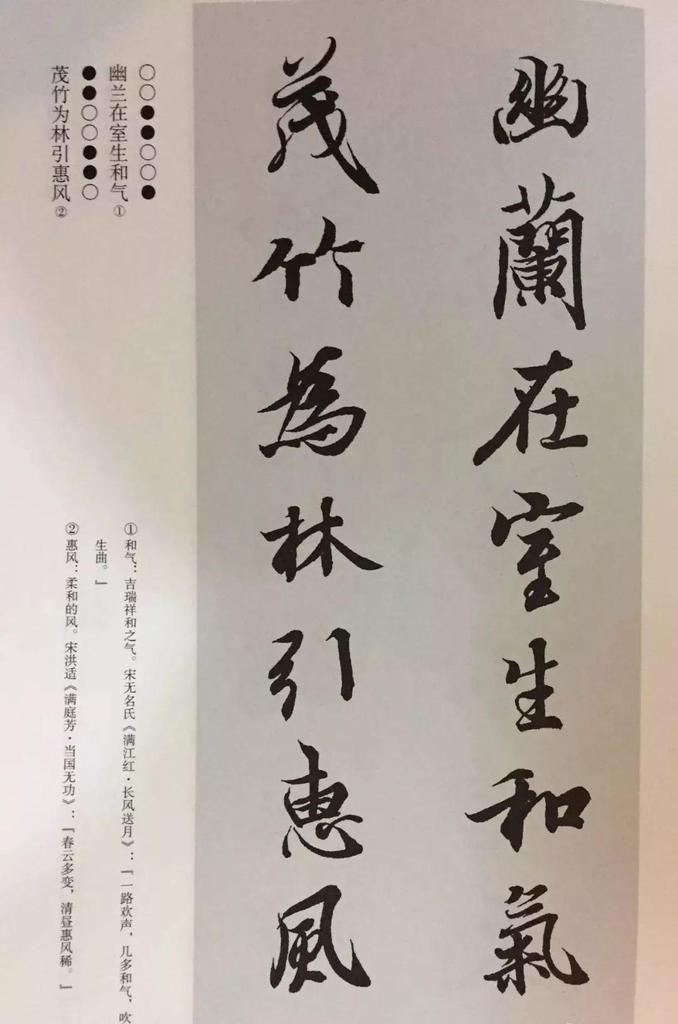 幽蘭在室生和氣
茂竹為林引惠風
○○●●○○●
幽兰在室生和气①
●●○○●●○
茂竹为林引惠风②
①和气：吉瑞祥和之气。宋无名氏《满江红·长风送月》：「一路欢声，几多和气，吹
生曲。」
②惠风：柔和的风。宋洪适《满庭芳·当国无功》：「春云多变，清昼惠风稀。」